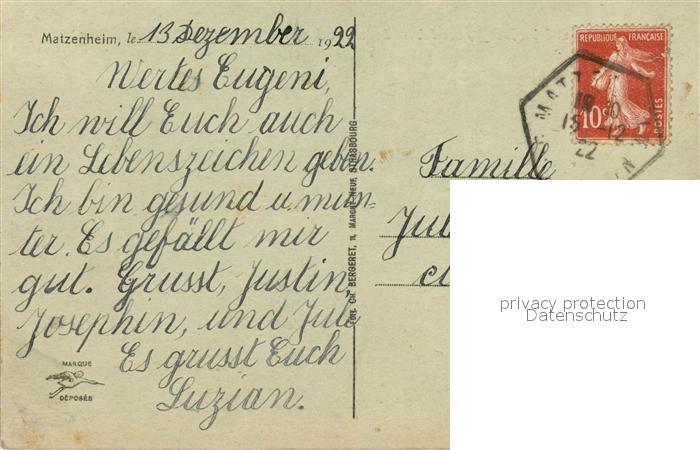 Matzenheim, le 13 Dezember 1922
Wertes Eugeni,
Ich will Euch auch
ein Lebenszeichen geben.
Ich bin gesund u. mun-
ter. Es gefällt mir
gut. Grusst, Justin,
Josephin, und Jule
Es grusst Euch
Luzian.
MARQUE
DÉPOSÉE
CH. BERGERET, 11, MARCHÉ-NEUF, STRASBOURG
REPUBLIQUE FRANÇAISE
10c
POSTES
MATZ
12
22
Famille
Jul
privacy protection
Datenschutz